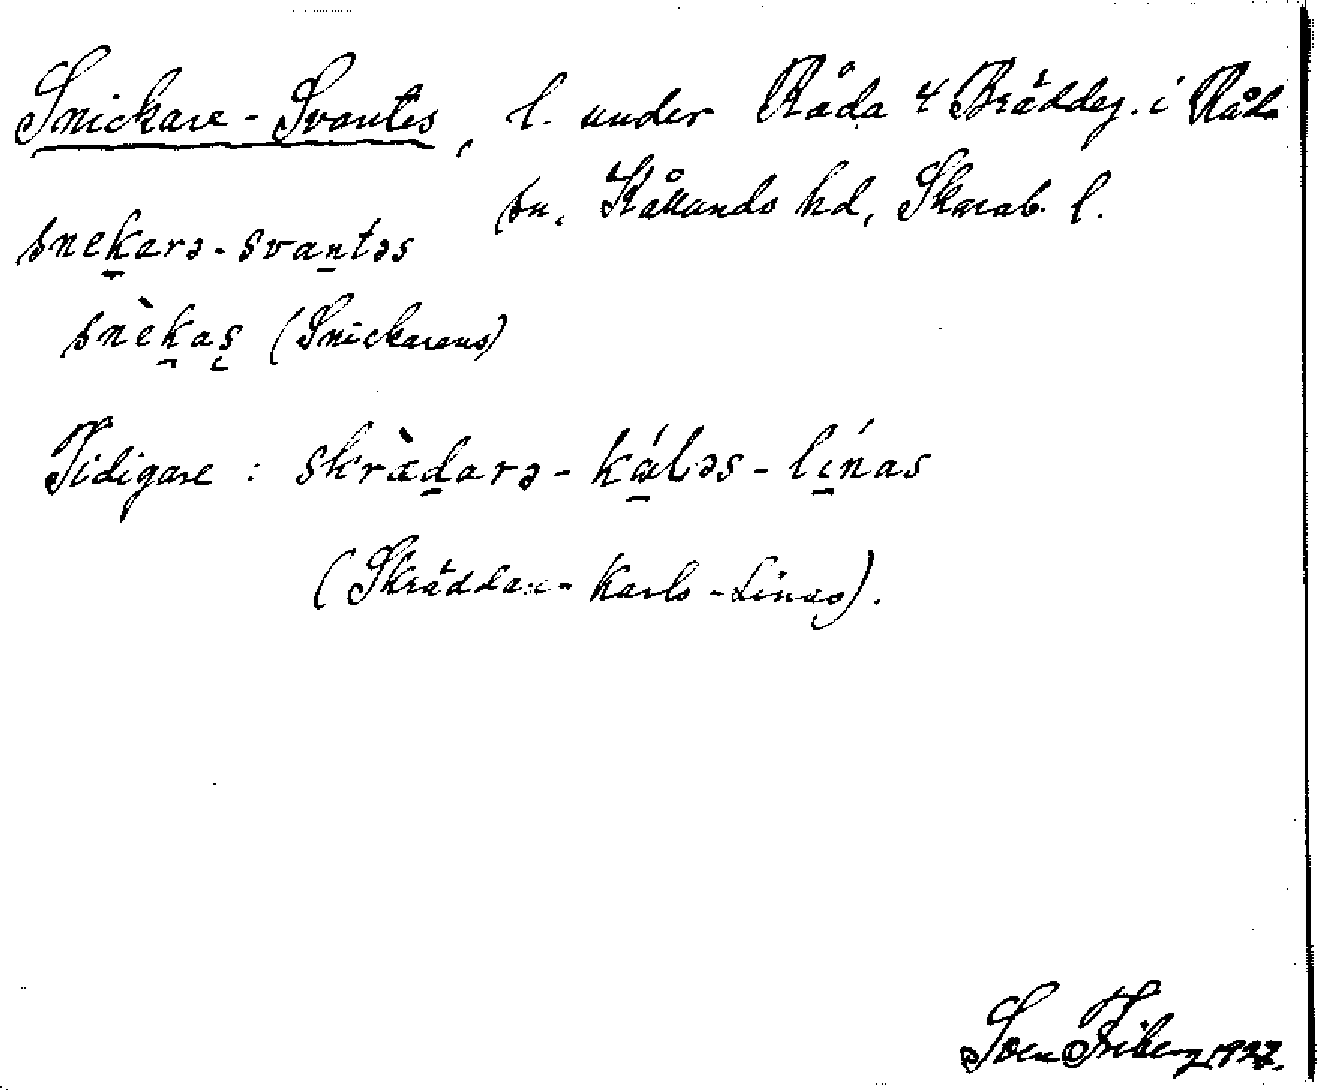 Snickare-Svantes, l. under Råda 4 Bräddeg. i Råda
sn, Kållands hd, Skarab. l.
snekarə-svantəs
snèkas̨ (Snickarens)
Tidigare : skrædarə-káLəs-línas
(Skräddare-Karls-Linas).
Sven Friberg 1927.